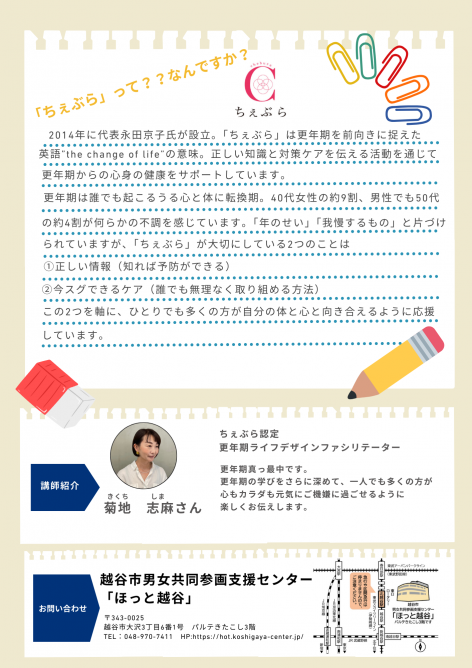 「ちぇぶら」って？？なんですか？
ちぇぶら
2014年に代表永田京子氏が設立。「ちぇぶら」は更年期を前向きに捉えた
英語"the change of life"の意味。正しい知識と対策ケアを伝える活動を通じて
更年期からの心身の健康をサポートしています。
更年期は誰でも起こるうる心と体に転換期。40代女性の約9割、男性でも50代
の約4割が何らかの不調を感じています。「年のせい」「我慢するもの」と片づけ
られていますが、「ちぇぶら」が大切にしている2つのことは
①正しい情報（知れば予防ができる）
②今スグできるケア（誰でも無理なく取り組める方法）
この2つを軸に、ひとりでも多くの方が自分の体と心と向き合えるように応援
しています。
講師紹介
きくち　しま
菊地　志麻さん
ちぇぶら認定
更年期ライフデザインファシリテーター
更年期真っ最中です。
更年期の学びをさらに深めて、一人でも多くの方が
心もカラダも元気にご機嫌に過ごせるように
楽しくお伝えします。
お問い合わせ
越谷市男女共同参画支援センター
「ほっと越谷」
〒343-0025
越谷市大沢3丁目6番1号　パルテきたこし3階
TEL：048-970-7411　HP:https://hot.koshigaya-center.jp/
越谷市
男女共同参画支援センター
「ほっと越谷」
パルテきたこし3階です